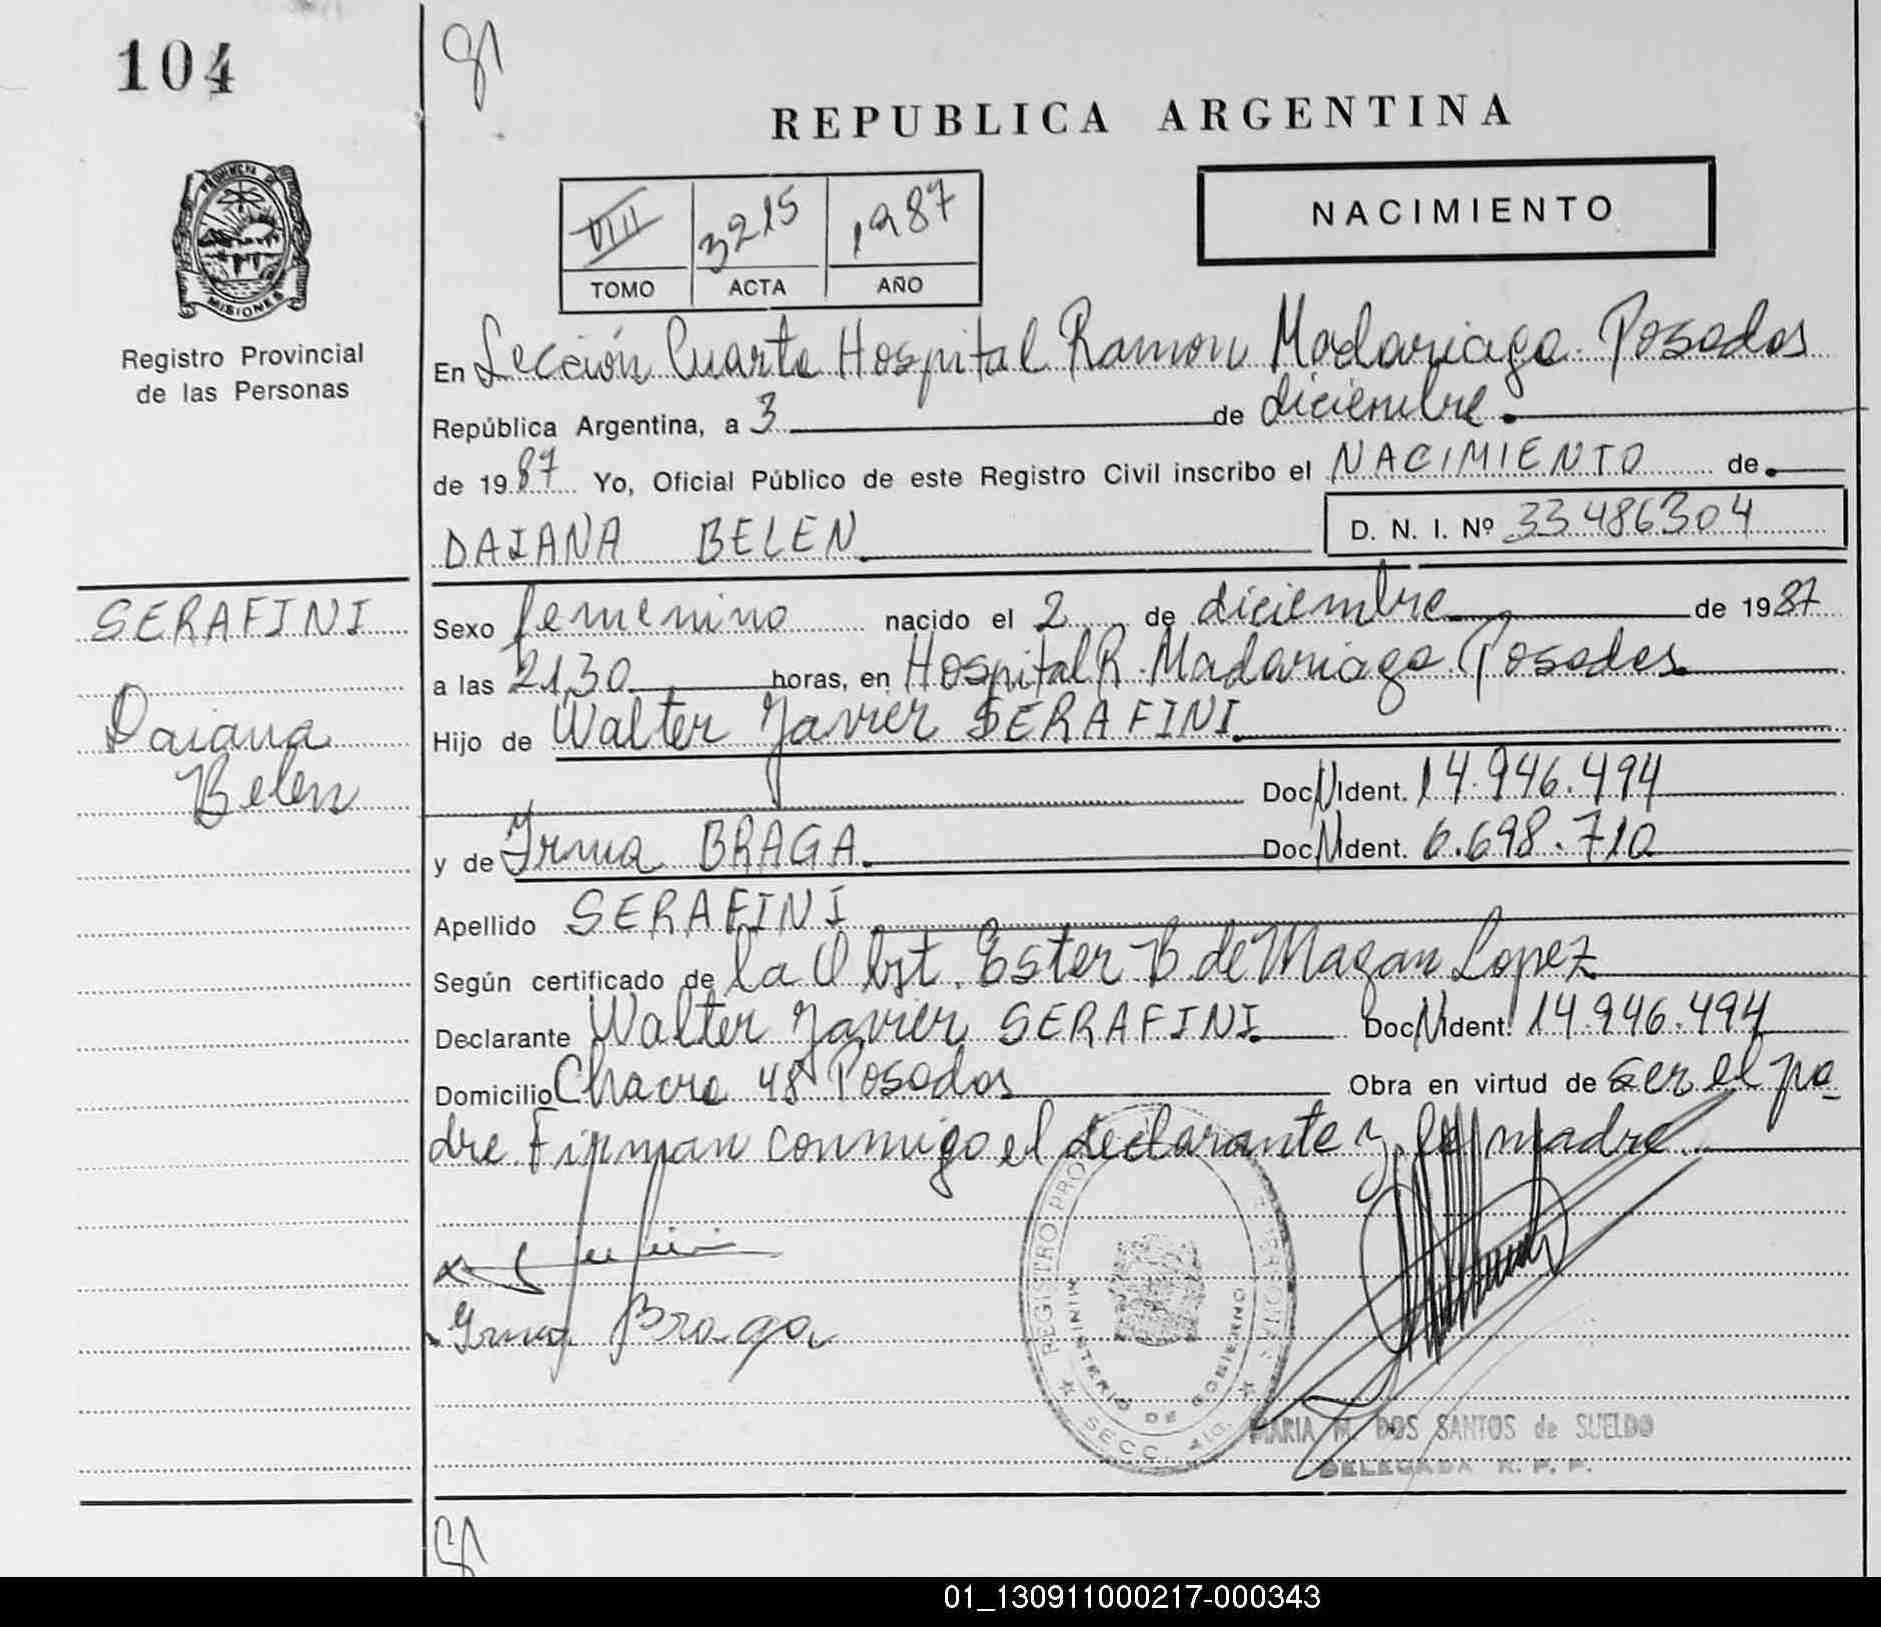 104
REPUBLICA ARGENTINA
PROVINCIA DE
MISIONES
Registro Provincial
de las Personas
VIII 3215 1987
TOMO ACTA AÑO
NACIMIENTO
En Sección Cuarta Hospital Ramon Madariaga Posadas
República Argentina, a 3 de diciembre
de 1987 Yo, Oficial Público de este Registro Civil inscribo el NACIMIENTO de
DAIANA BELEN D. N. I. Nº 33486304
SERAFINI
Daiana
Belen
Sexo femenino nacido el 2 de diciembre de 1987
a las 21,30 horas, en Hospital R. Madariaga Posadas
Hijo de Walter Javier SERAFINI
Doc. N Ident. 14.946.494
y de Irma BRAGA Doc. N Ident. 6.698.710
Apellido SERAFINI
Según certificado de la Obst. Ester B de Mazan Lopez
Declarante Walter Javier SERAFINI Doc. N Ident. 14.946.494
Domicilio Chacra 48 Posadas Obra en virtud de ser el pa
dre. Firman conmigo el declarante y la madre
Irma Braga
REGISTRO PRO
MINISTERIO DE GOBIERNO
SECC.
MARIA M. DOS SANTOS de SUELDO
DELEGADA R. P. P.
01_130911000217-000343